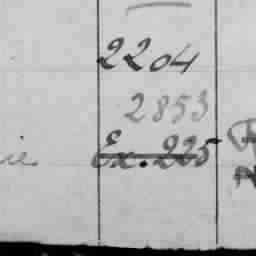 2204
2853
Ex. 225